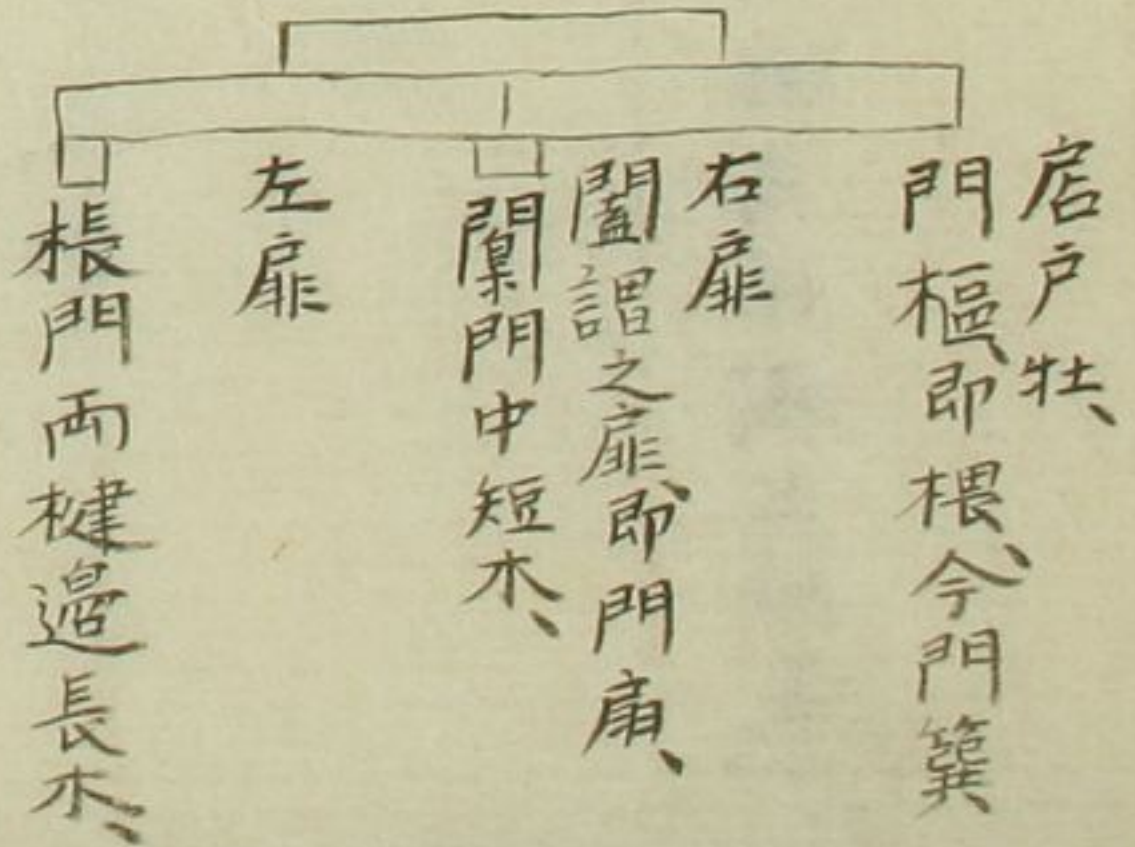 扂戸牡、
門樞、即椳、今門簨、
右扉
闔謂之扉、即門扇、
闑門中短木、
左扉
棖門両楗邉長木、